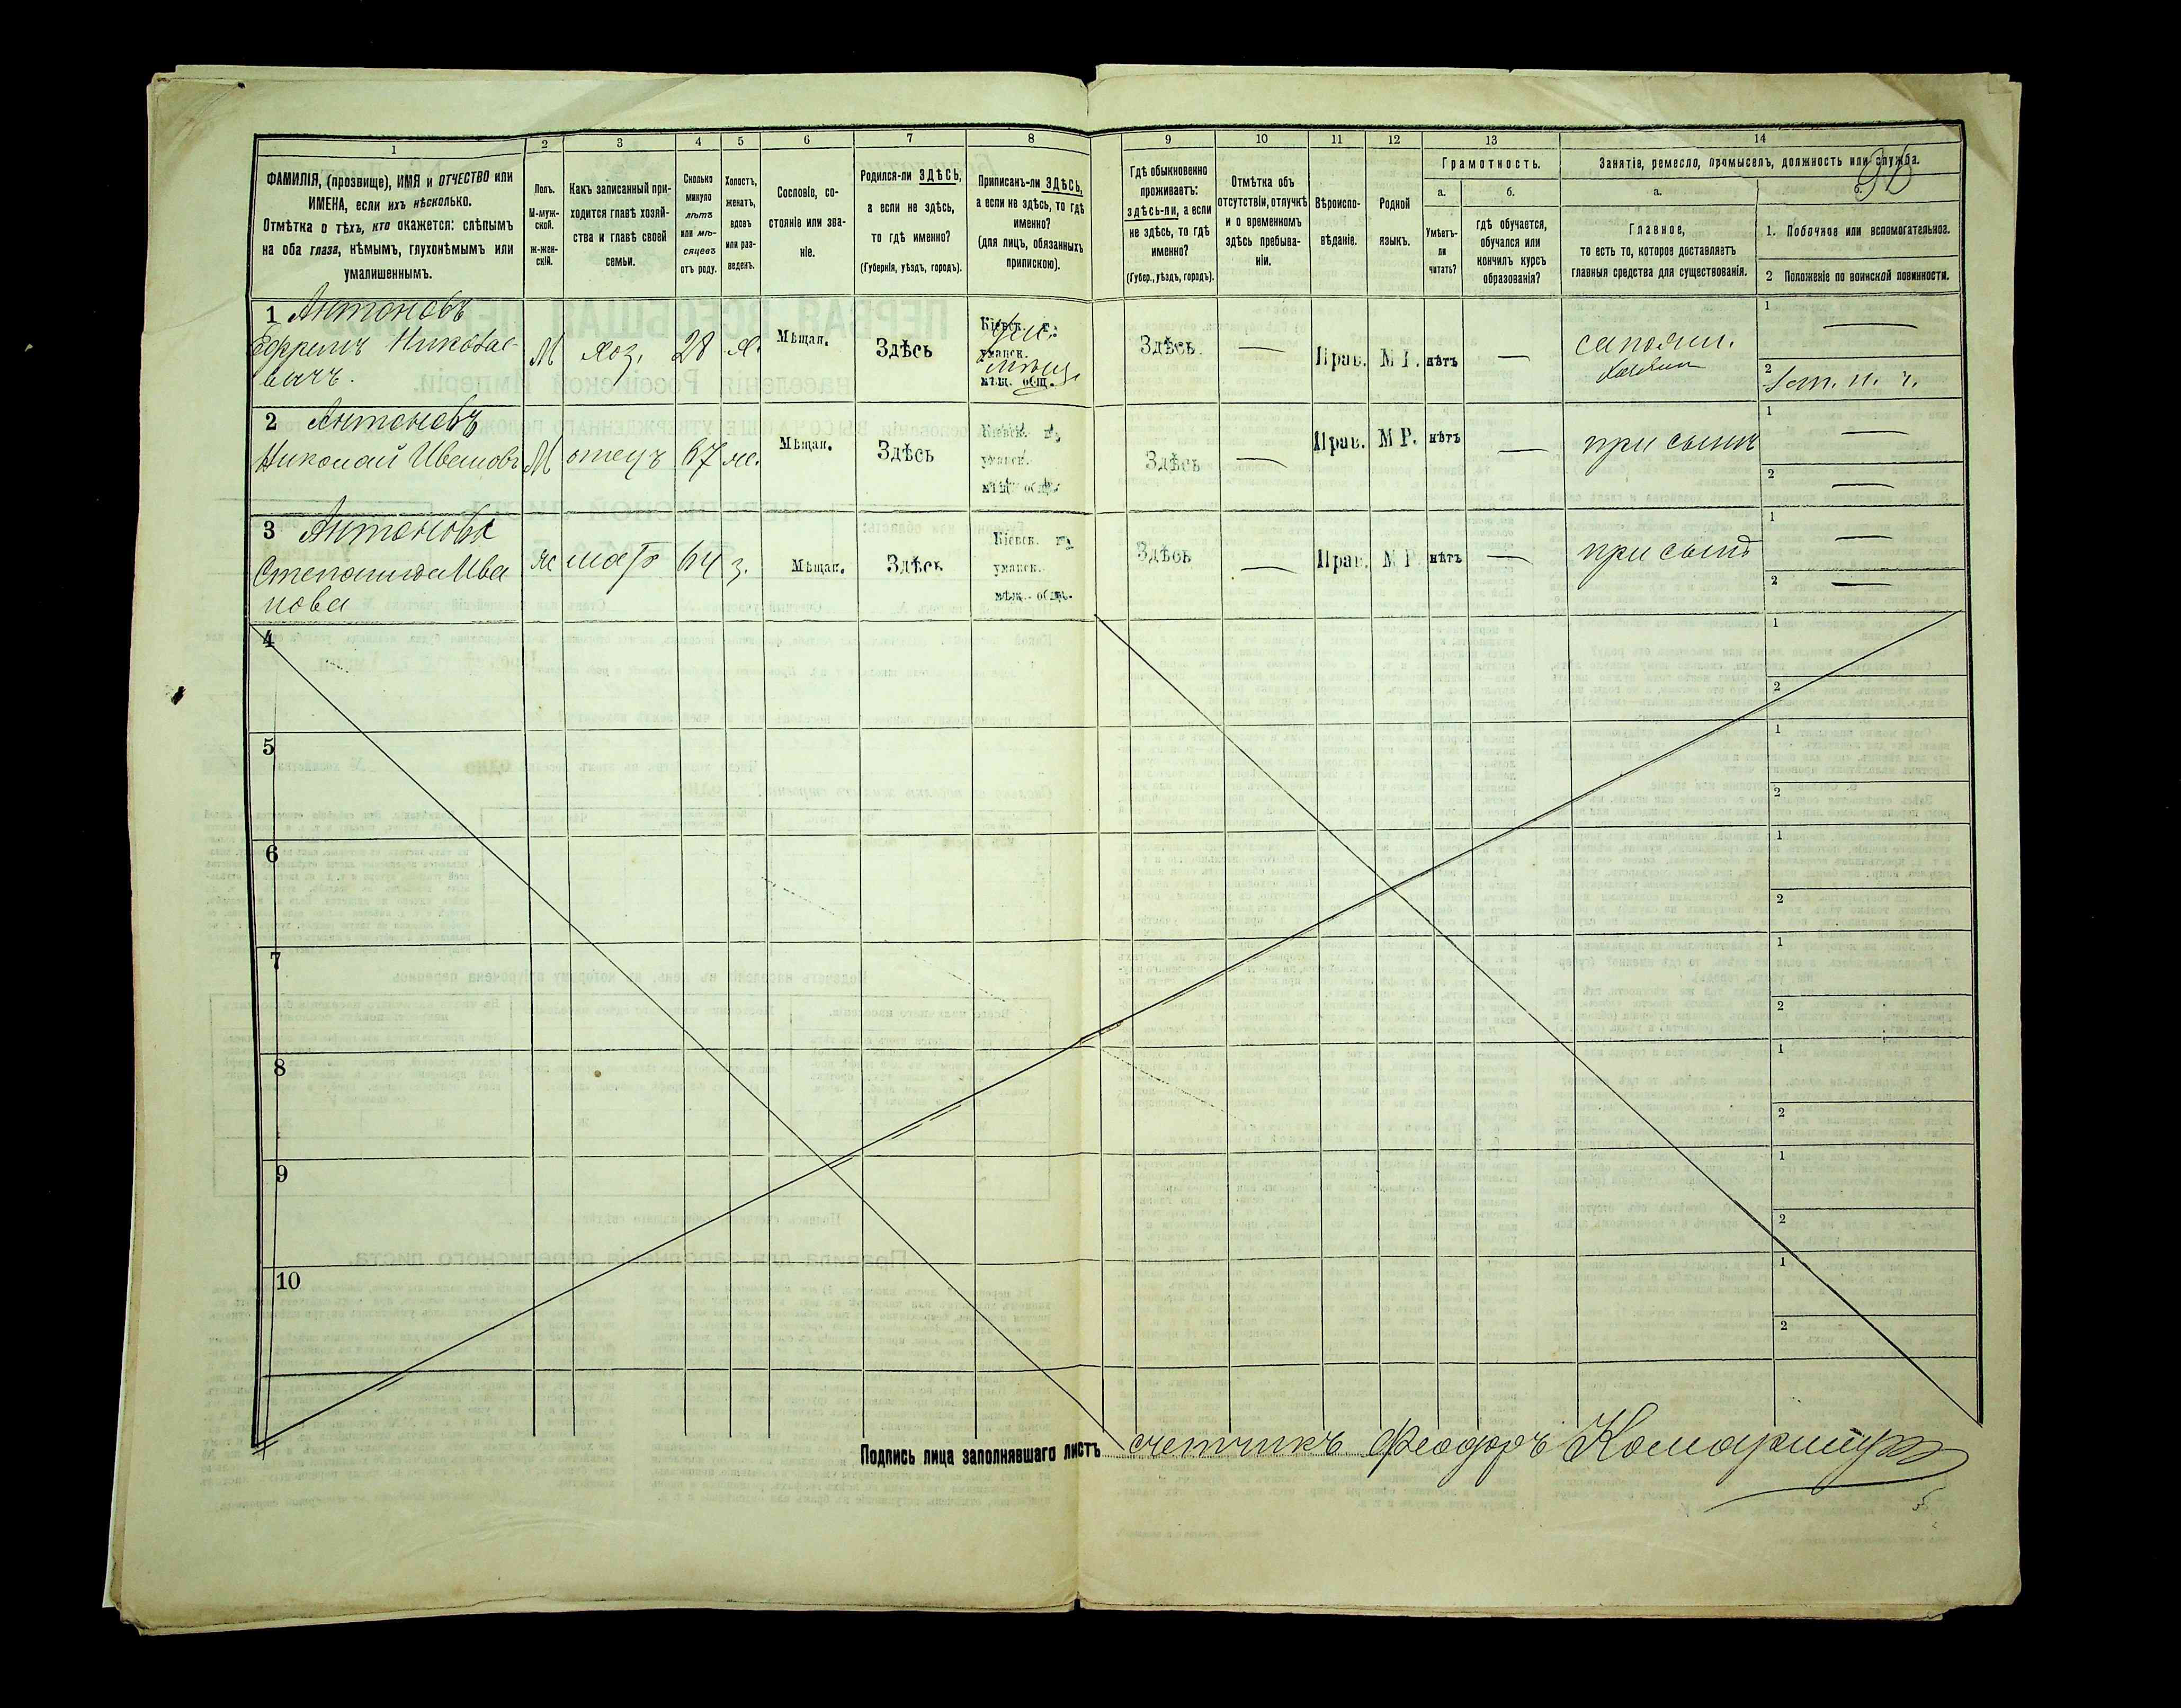 1 2 3 4 5 6 7 8 9 10 11 12 13 14
36
ФАМИЛІЯ, (прозвище), ИМЯ и ОТЧЕСТВО или
ИМЕНА, если ихъ нѣсколько.
Отмѣтка о тѣхъ, кто окажется: слѣпымъ
на оба глаза, нѣмымъ, глухонѣмымъ или
умалишеннымъ.
Полъ.
М-муж-
ской.
ж-жен-
скій.
Какъ записанный при-
ходится главѣ хозяй-
ства и главѣ своей
семьи.
Сколько
минуло
лѣтъ
или мѣ-
сяцевъ
отъ роду.
Холостъ,
женатъ,
вдовъ
или раз-
веденъ.
Сословіе, со-
стояніе или зва-
ніе.
Родился-ли ЗДѢСЬ,
а если не здѣсь,
то гдѣ именно?
(Губернія, уѣздъ, городъ).
Приписанъ-ли ЗДѢСЬ,
а если не здѣсь, то гдѣ
именно?
(для лицъ, обязанныхъ
припискою).
Гдѣ обыкновенно
проживаетъ:
здѣсь-ли, а если
не здѣсь, то гдѣ
именно?
(Губер., уѣздъ, городъ).
Отмѣтка объ
отсутствіи, отлучкѣ
и о временномъ
здѣсь пребыва-
ніи.
Вѣроиспо-
вѣданіе.
Родной
языкъ.
Грамотность.
а.
Умѣетъ-
ли
читать?
б.
гдѣ обучается,
обучался или
кончилъ курсъ
образованія?
Занятіе, ремесло, промыселъ, должность или служба.
а.
Главное,
то есть то, которое доставляетъ
главныя средства для существованія.
б.
1. Побочное или вспомогательное.
2 Положеніе по воинской повинности.
1 Антоновъ
Ефримъ Николае-
вичъ.
М хоз. 28 х. Мѣщан. Здѣсь
Кіевск. г.
уманск.
мѣщ. общ.
Здѣсь — Прав. М Р. нѣтъ — сапожн.
1 —
2
2 Антоновъ
Николай Ивановъ
М отецъ 67 ж. Мѣщан. Здѣсь
Кіевск. г.
уманск.
мѣщ. общ.
Здѣсь — Прав. М Р. нѣтъ — при сынѣ
1 —
2 —
3 Антонова
Степанида Ива
нова
ж мать 64 з. Мѣщан. Здѣсь
Кіевск. г.
уманск.
мѣщ. общ.
Здѣсь — Прав. М Р. нѣтъ — при сынѣ
1 —
2 —
4 1
2
5 1
2
6 1
2
7 1
2
8 1
2
9 1
2
10 1
2
Подпись лица заполнявшаго листъ счетчикъ Феодоръ